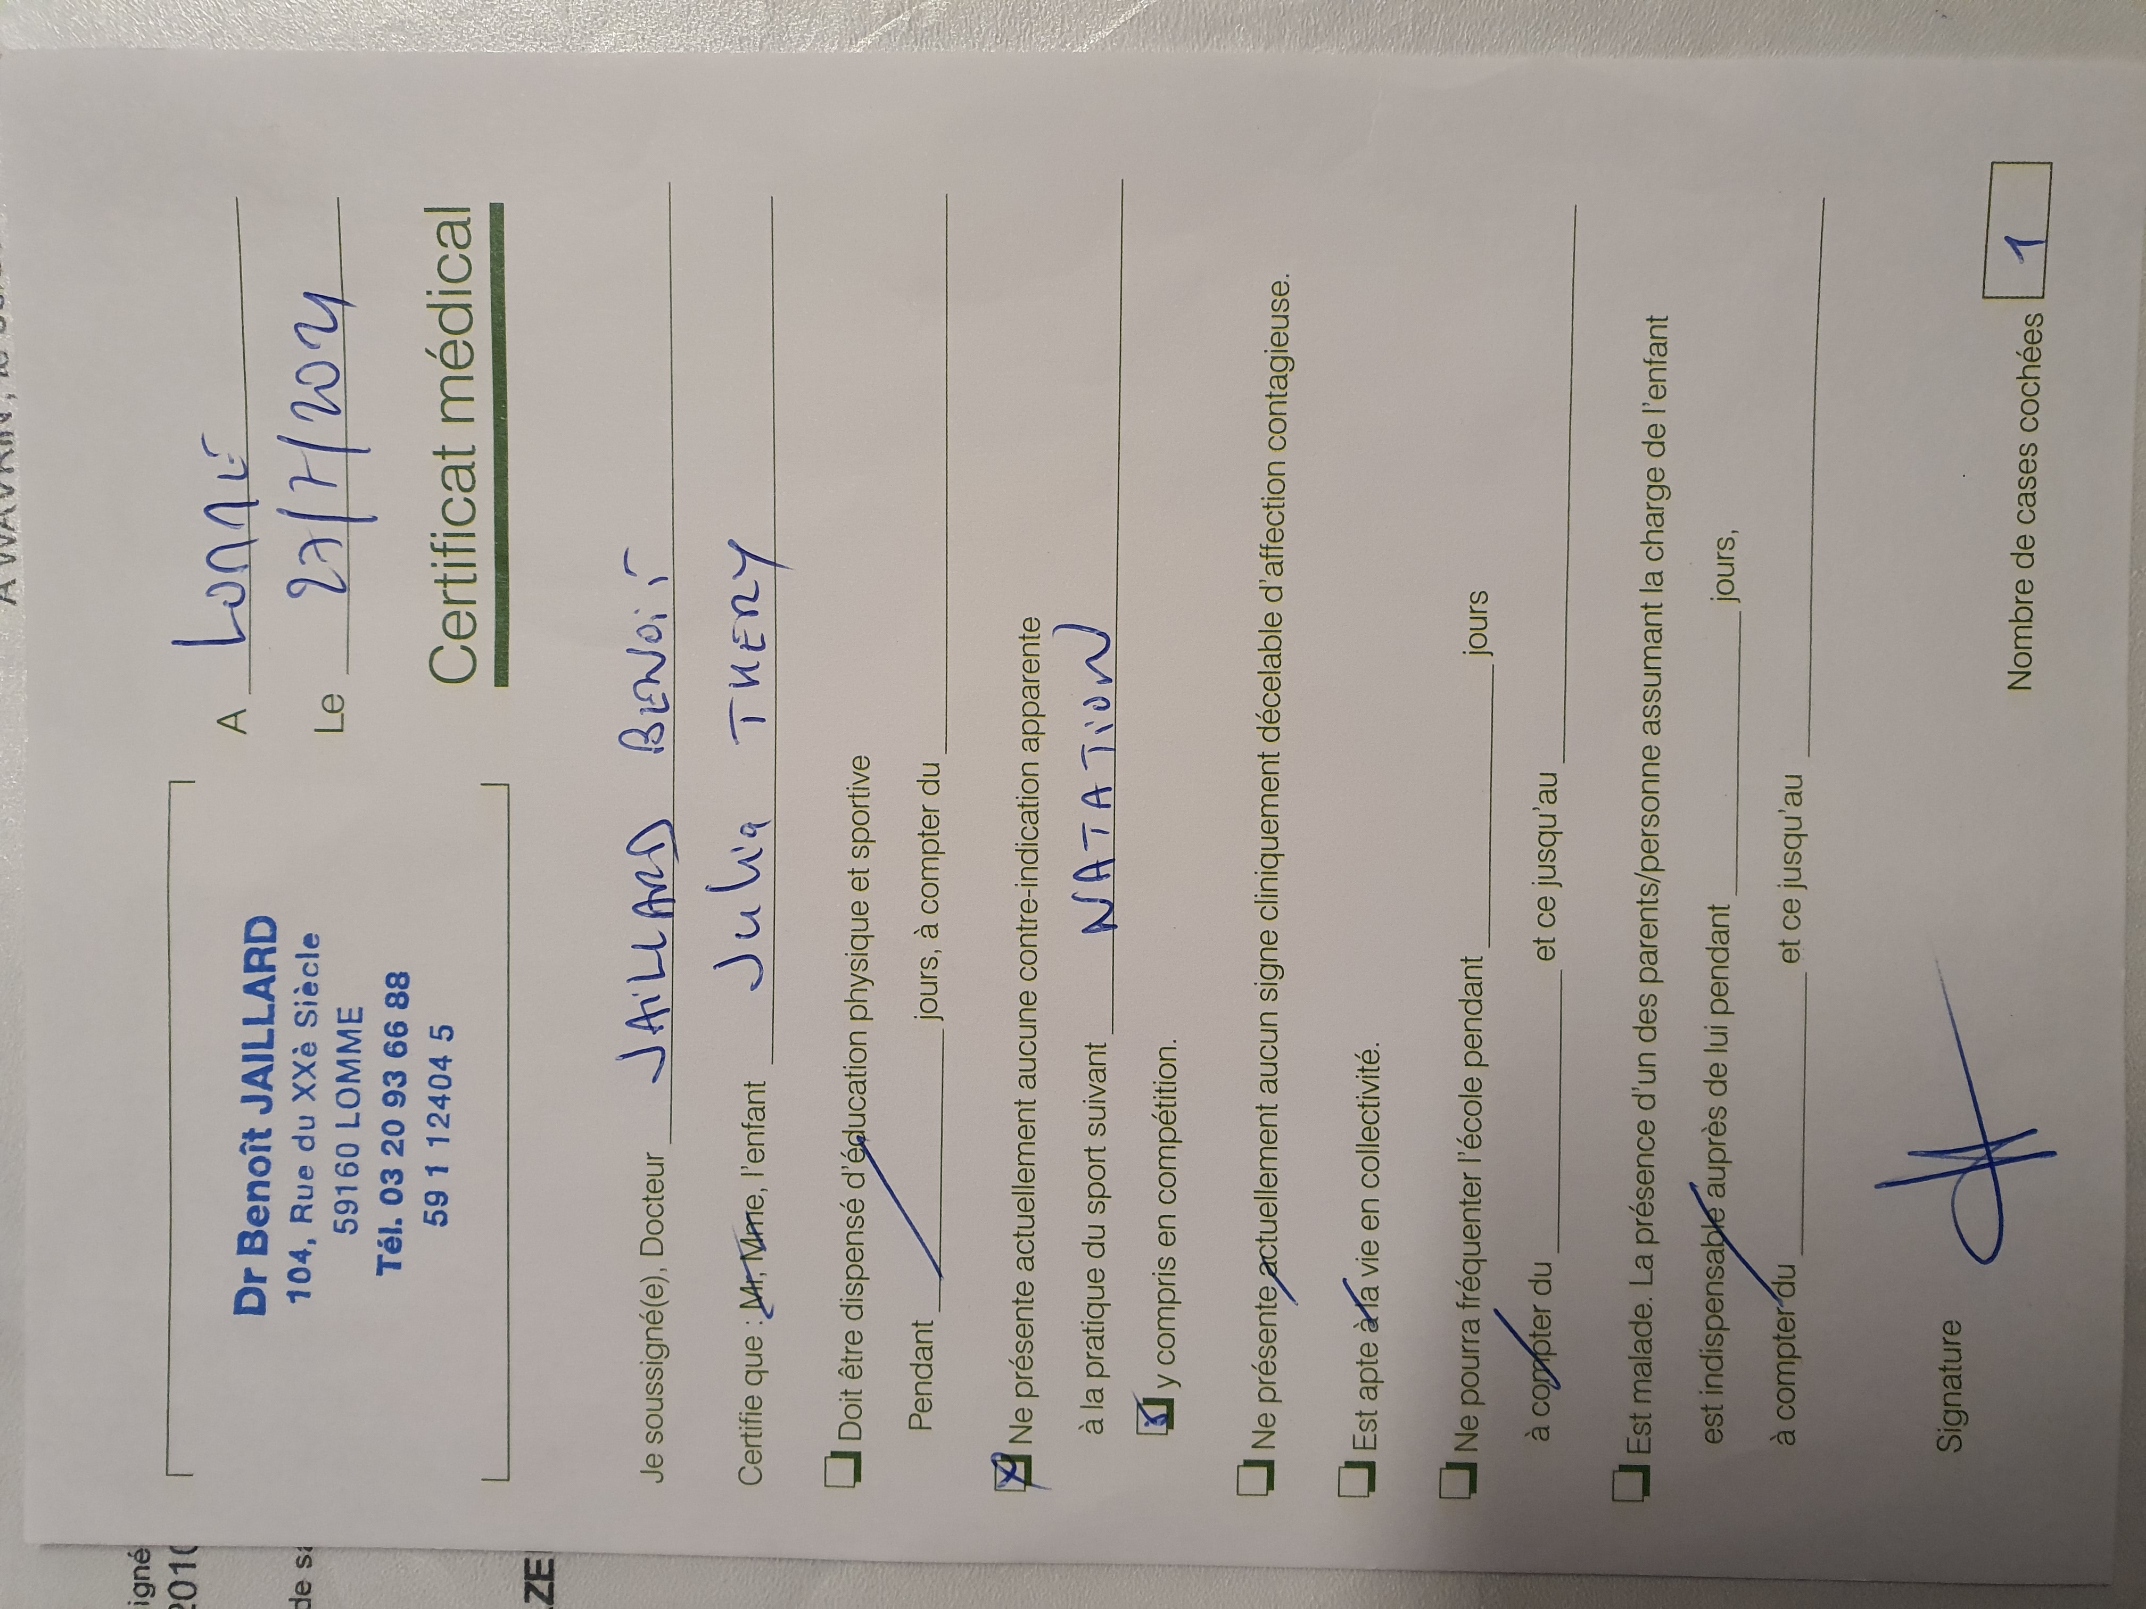 Dr Benoît JAILLARD
104, Rue du XXè Siècle
59160 LOMME
Tél. 03 20 93 66 88
59 1 12404 5
A LOMME
Le 27/7/2024
Certificat médical
Je soussigné(e), Docteur JAILLARD BENOIT
Certifie que : Mr, Mme, l'enfant Julia THERY
Doit être dispensé d'éducation physique et sportive
Pendant jours, à compter du
Ne présente actuellement aucune contre-indication apparente
à la pratique du sport suivant NATATION
y compris en compétition.
Ne présente actuellement aucun signe cliniquement décelable d'affection contagieuse.
Est apte à la vie en collectivité.
Ne pourra fréquenter l'école pendant jours
à compter du et ce jusqu'au
Est malade. La présence d'un des parents/personne assumant la charge de l'enfant
est indispensable auprès de lui pendant jours,
à compter du et ce jusqu'au
Signature
Nombre de cases cochées 1
igné
2010
de sa